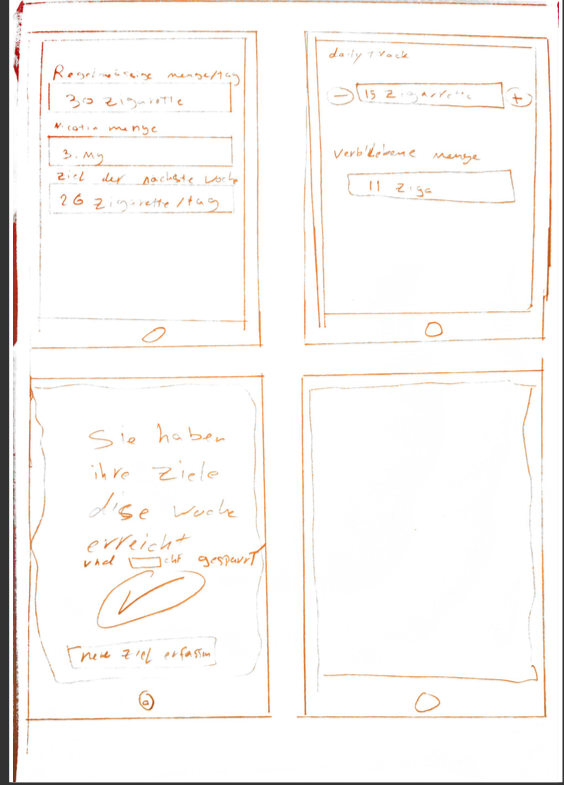 Regelmäreige menge/tag
30 Zigarette
Nicotin menge
3. Mg
Ziel der nächste woche
26 Zigarette/tag
daily Track
- 15 Zigarrette +
Verbliebene menge
11 Ziga
Sie haben
ihre Ziele
dise woche
erreicht
und chf gesparrt
neue Ziel erfassen